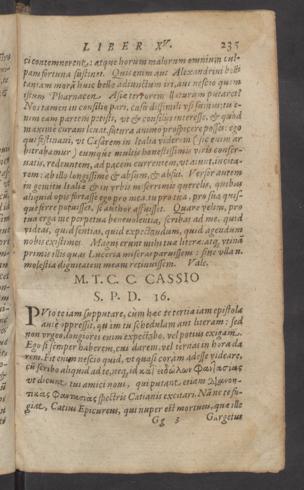 LIBER XV. 235
ti contemnerent: atque horum malorum omnium culpam fortuna sustinet. Quis enim aut Alexandrini belli
tantam moram huic bello adiunctum iri, aut nescio quem
istum Pharnacen Asiæ terrorem illaturum putaret?
Nos tamen in consilio pari, casu dissimili usi sumus: tu enim eam partem petisti, ut & consiliis interesses, & quod
maxime curam leuat, futura animo prospicere posses: ego
qui festinaui, ut Cæsarem in Italia viderem (sic enim arbitrabamur) eumque multis honestissimis viris conseruatis, redeuntem, ad pacem currentem, ut aiunt, incitarem: ab illo longissime & absum, & abfui. Versor autem
in gemitu Italiæ & in vrbis miserrimis querelis, quibus
aliquid opis fortasse ego pro mea, tu pro tua, pro sua quisque ferre potuisset, si auctor affuisset. Quare velim, pro
tua erga me perpetua beneuolentia, scribas ad me, quid
videas, quid sentias, quid expectandum, quid agendum
nobis existimes. Magni erunt mihi tuæ literæ: atq, vtinā
primis illis quas Luceria miseras paruissem: sine vlla n.
molestia dignitatem meam retinuissem. Vale.
M. T. C. C. CASSIO
S. P. D. 16.
PVto te iam suppudere, cum hæc te tertia iam epistola
ante oppressit, quàm tu schedulam aut literam: sed
non vrgeo. longiores enim expectabo, vel potius exigam.
Ego si semper haberem, cui darem, vel ternas in hora darem. Fit enim nescio quid, vt quasi coram adesse videare,
cū scribo aliquid ad te, neq, id καὶ εἰδώλων Φαντασίας
vt dicunt tui amici noui, qui putant etiam Διανοητικὰς Φαντασίας spectris Catianis excitari. Nā ne te fugiat, Catius Epicureus, qui nuper est mortuus, quæ ille
Gg 3 Gargetius